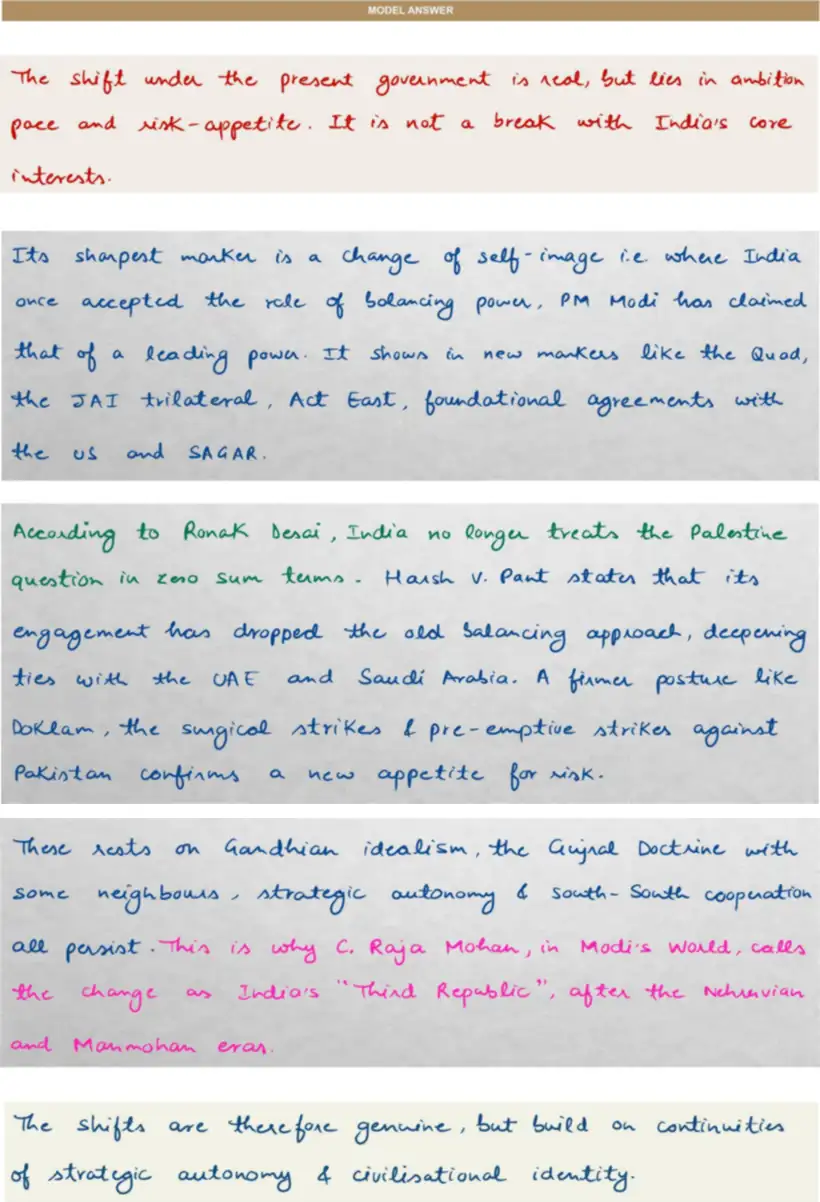 MODEL ANSWER
The shift under the present government is real, but lies in ambition
pace and risk-appetite. It is not a break with India's core
interests.
Its sharpest marker is a change of self-image i.e. where India
once accepted the role of balancing power, PM Modi has claimed
that of a leading power. It shows in new markers like the Quad,
the JAI trilateral, Act East, foundational agreements with
the US and SAGAR.
According to Ronak Desai, India no longer treats the Palestine
question in zero sum terms. Harsh V. Pant states that its
engagement has dropped the old balancing approach, deepening
ties with the UAE and Saudi Arabia. A firmer posture like
Doklam, the surgical strikes & pre-emptive strikes against
Pakistan confirms a new appetite for risk.
These rests on Gandhian idealism, the Gujral Doctrine with
some neighbours, strategic autonomy & South-South cooperation
all persist. This is why C. Raja Mohan, in Modi's World, calls
the change as India's "Third Republic", after the Nehruvian
and Manmohan eras.
The shifts are therefore genuine, but build on continuities
of strategic autonomy & civilisational identity.